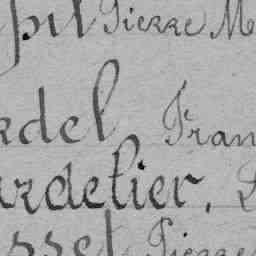 pil Pierre M
rdel Fran
ardelier,
sset Pierre